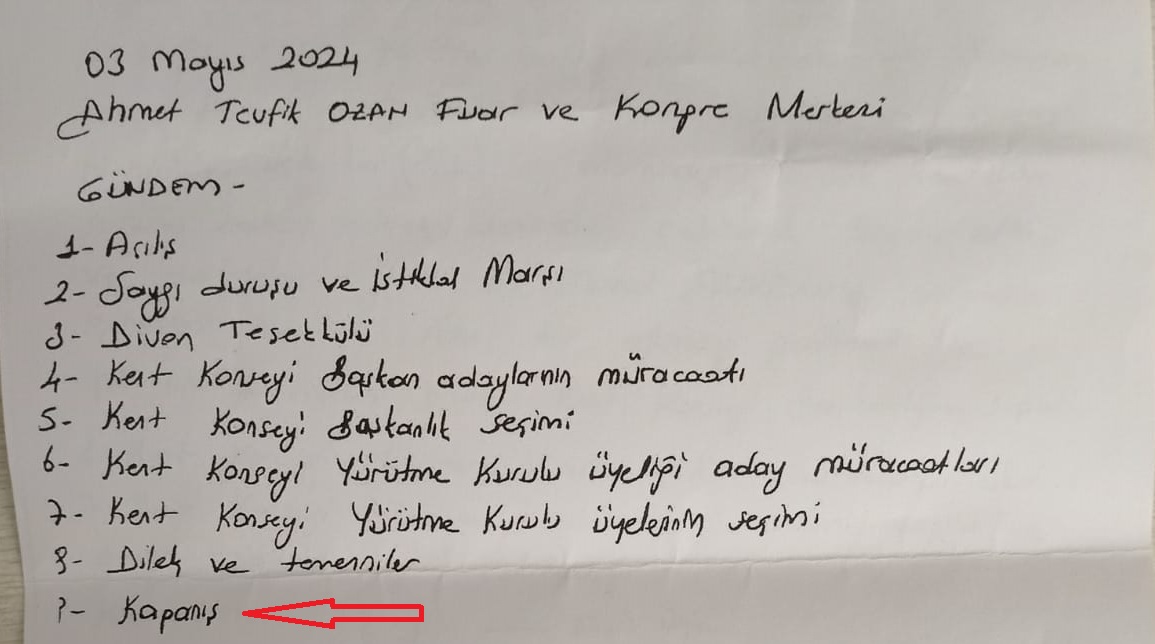 03 Mayıs 2024
Ahmet Tevfik OZAN Fuar ve Kongre Merkezi
GÜNDEM -
1- Açılış
2- Saygı duruşu ve İstiklal Marşı
3- Divan Teşekkülü
4- Kent Konseyi Başkan adaylarının müracaatı
5- Kent Konseyi Başkanlık seçimi
6- Kent Konseyi Yürütme Kurulu üyeliği aday müracaatları
7- Kent Konseyi Yürütme Kurulu üyelerinin seçimi
8- Dilek ve temenniler
9- Kapanış